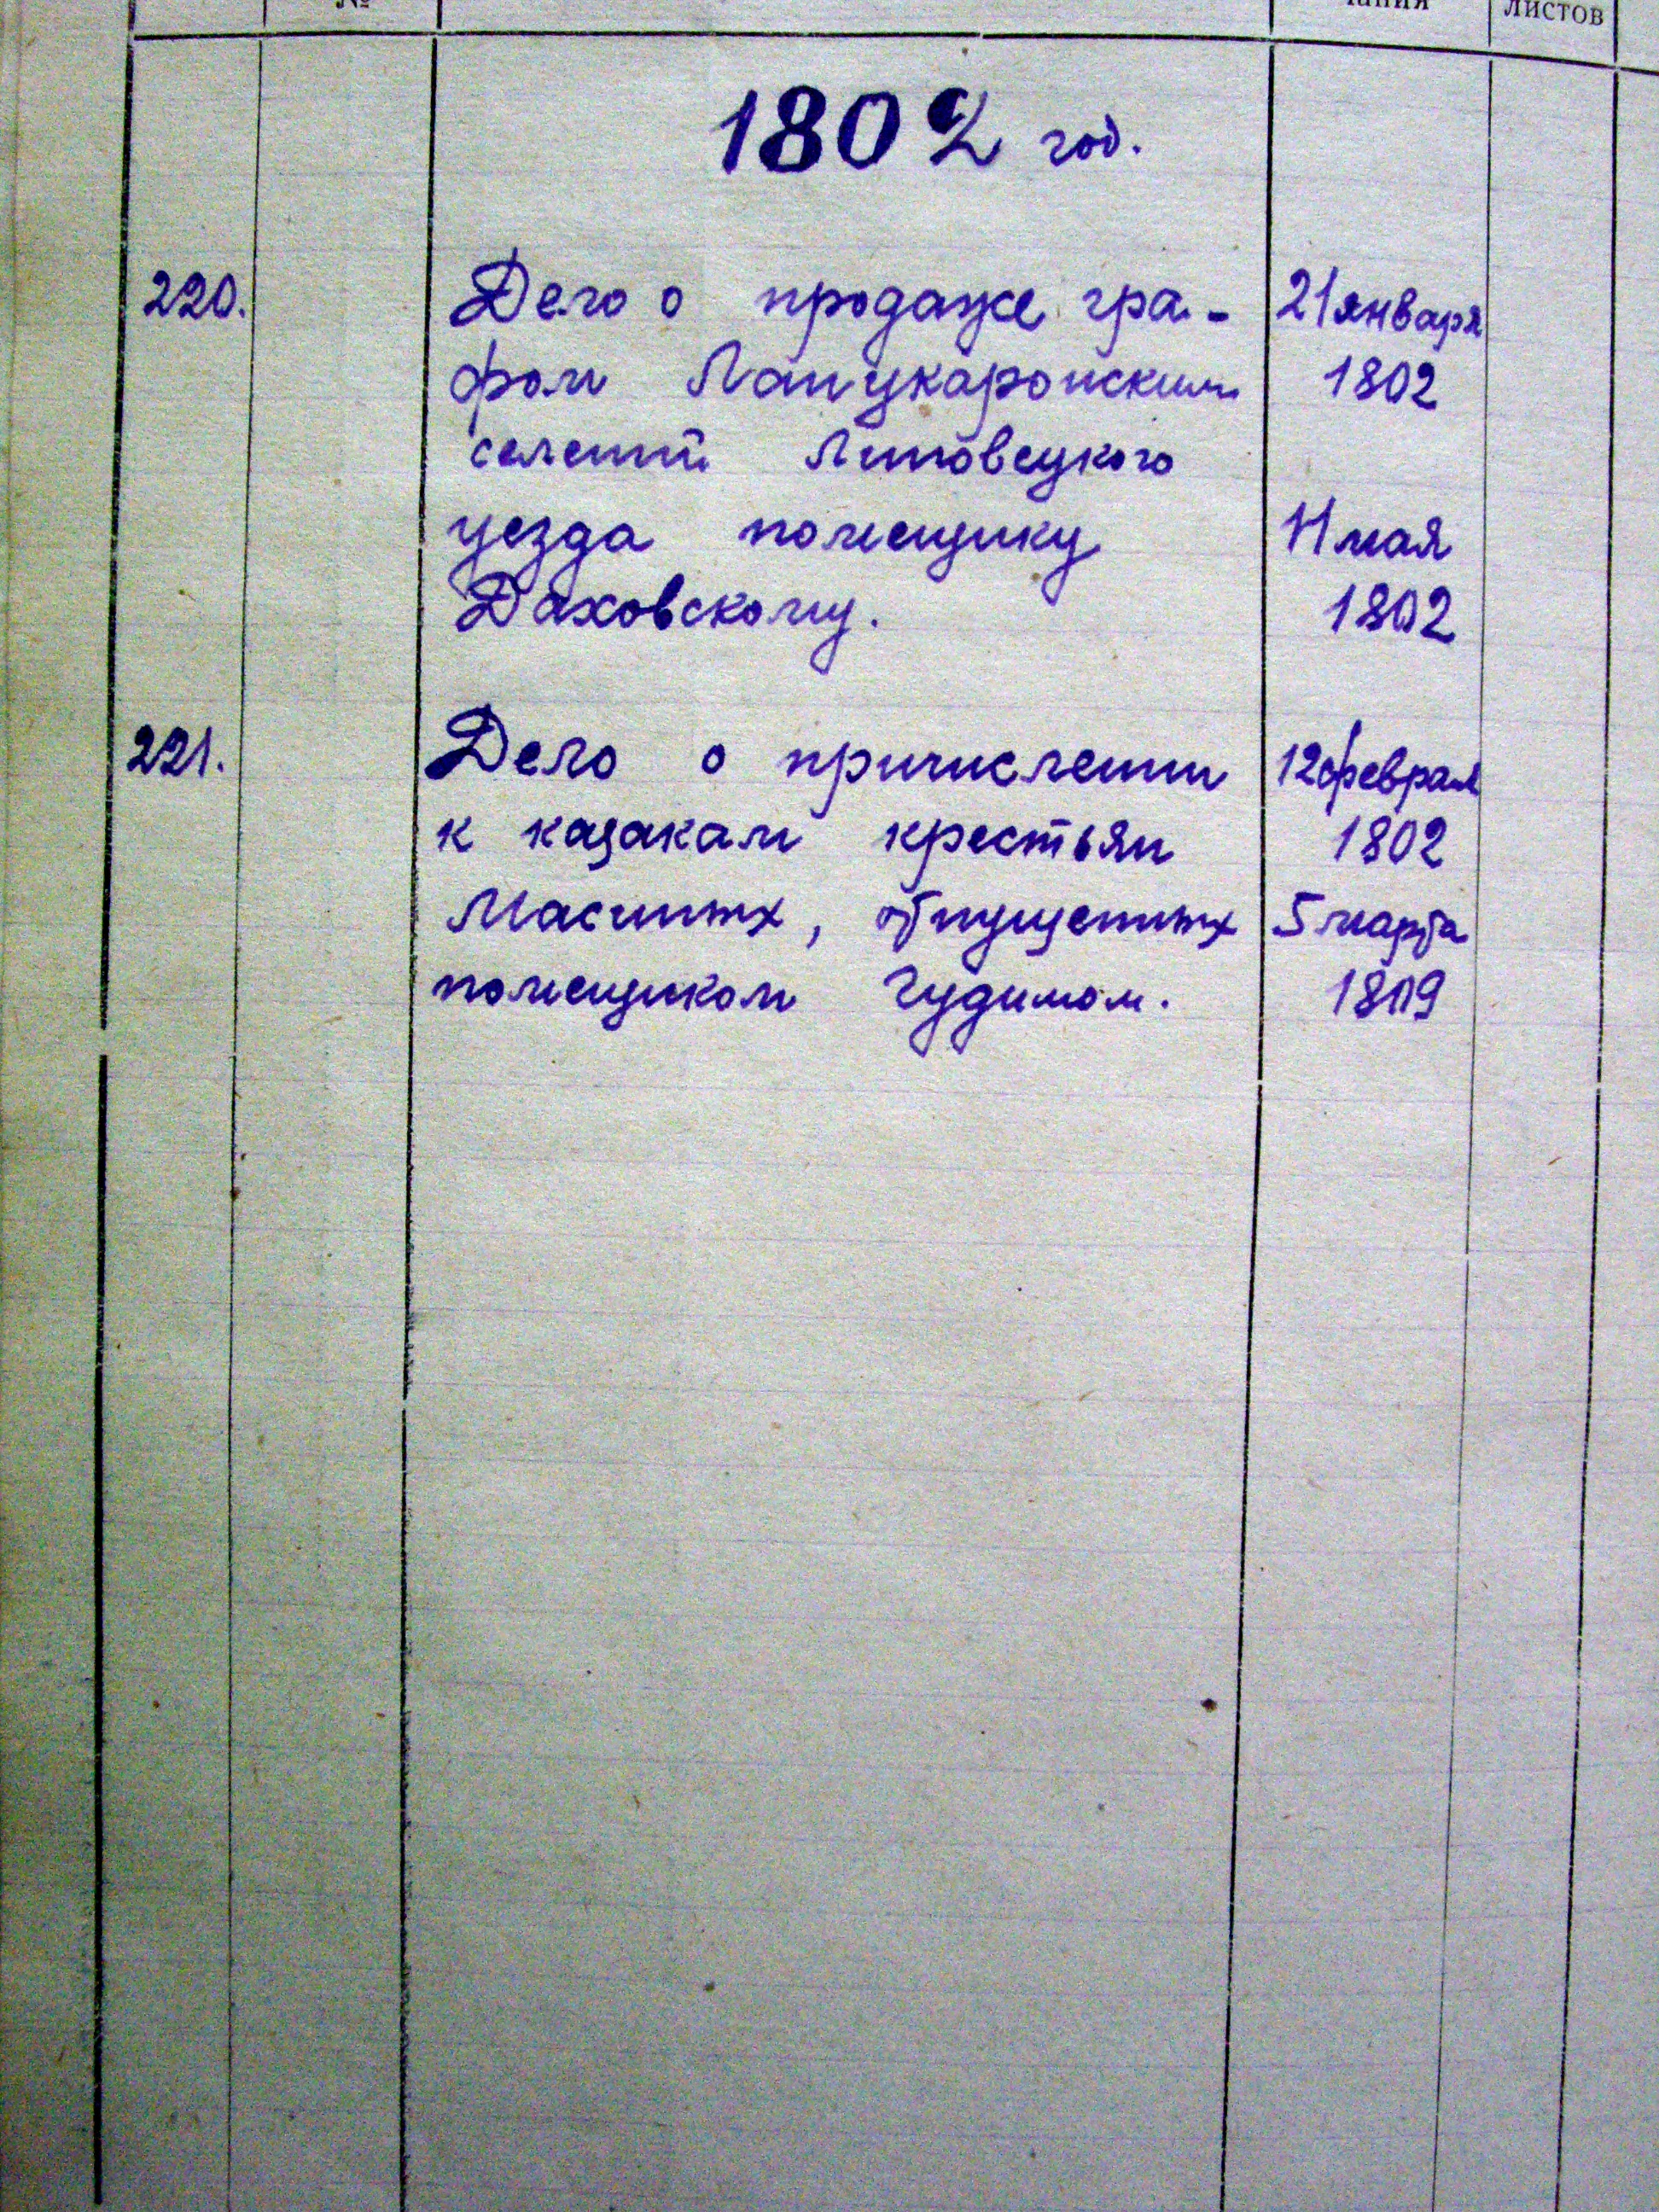 № чания листов
1802 год.
220. Дело о продаже гра- 21 января
фом Ланцкаронским 1802
селений Липовецкого
уезда помещику 11 мая
Даховскому. 1802
221. Дело о причислении 12 февраля
к казакам крестьян 1802
отпущенных 5 марта
помещиком Чудимом. 1809